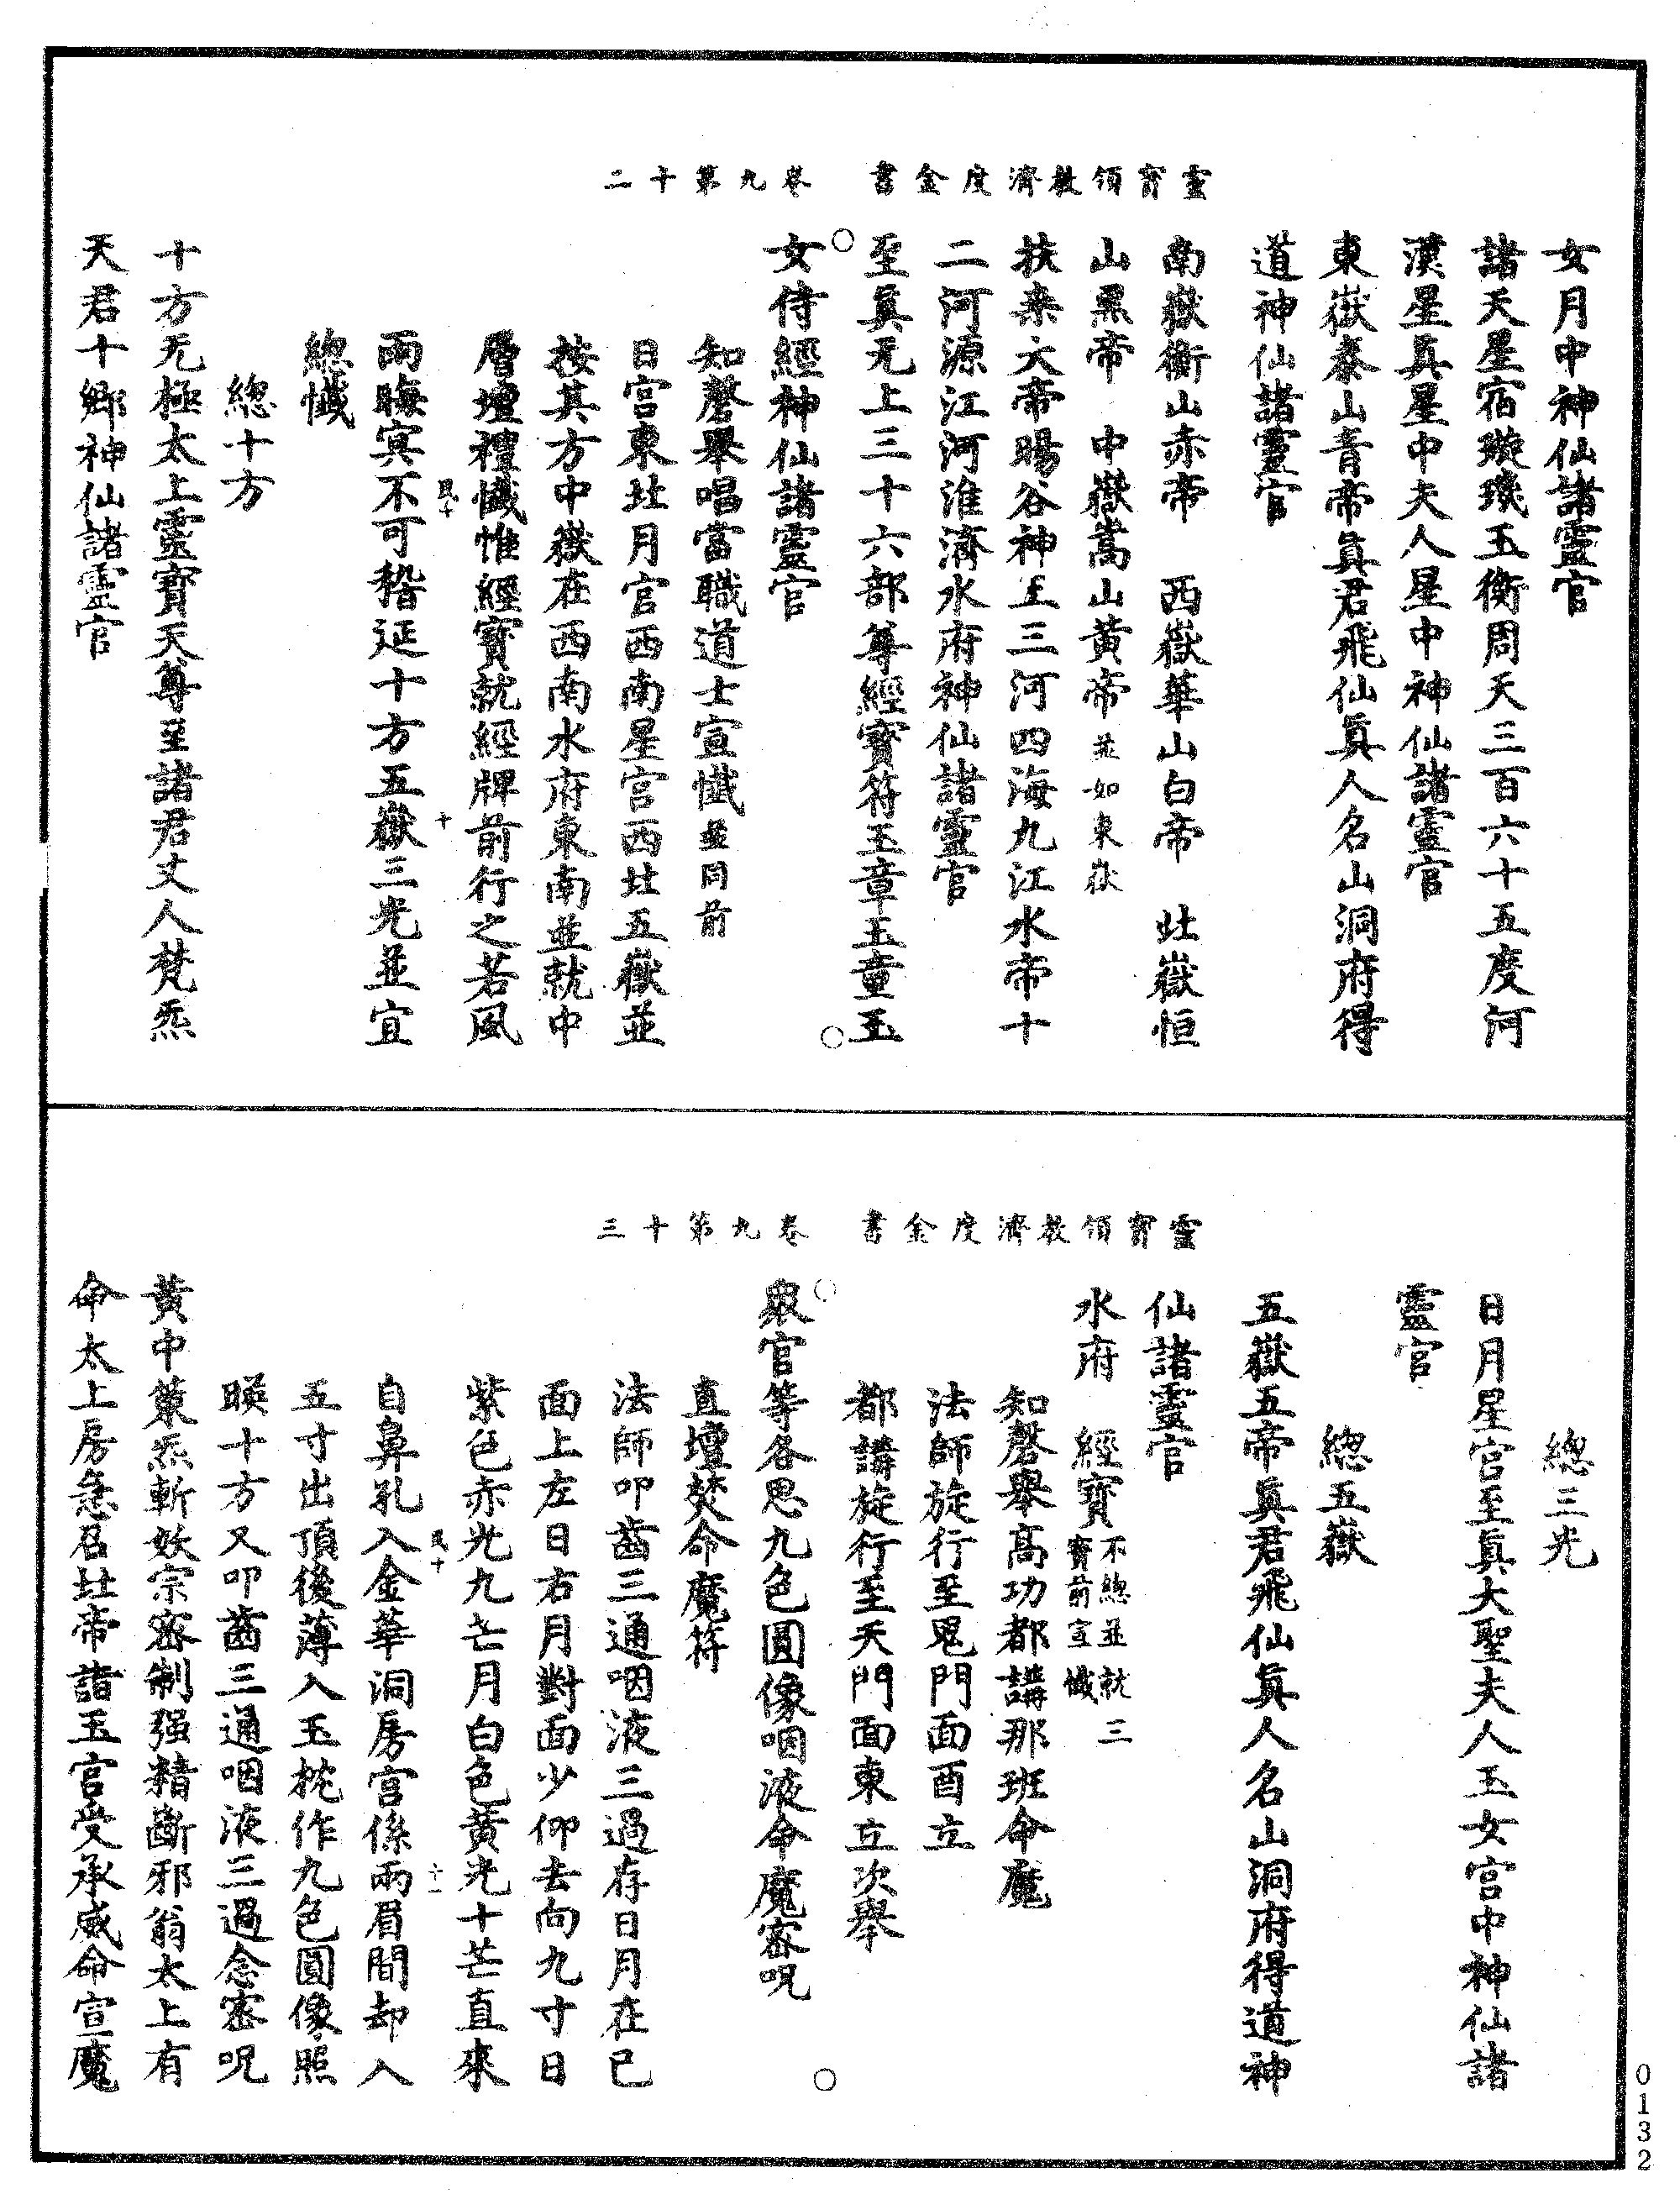 靈寶領教濟度金書　卷九第十二
女月中神仙諸靈官
諸天星宿璇璣玉衡周天三百六十五度河
漢星眞星中夫人星中神仙諸靈官
東嶽泰山青帝眞君飛仙眞人名山洞府得
道神仙諸靈官
南嶽衡山赤帝　西嶽華山白帝　北嶽恒
山黑帝　中嶽嵩山黃帝並如東嶽
扶桒大帝暘谷神王三河四海九江水帝十
二河源江河淮濟水府神仙諸靈官
至眞无上三十六部尊經寶符玉章玉童玉
女侍經神仙諸靈官
知磬舉唱當職道士宣懺並同前
日宮東北月宮西南星宮西北五嶽並
按其方中嶽在西南水府東南並就中
層壇禮懺惟經寶就經牌前行之若風
雨晦冥不可稽延十方五嶽三光並宜
總懺
總十方
十方无極太上靈寶天尊至諸君丈人梵炁
天君十鄉神仙諸靈官
靈寶領教濟度金書　卷九第十三
總三光
日月星宮至眞大聖夫人玉女宮中神仙諸
靈官
總五嶽
五嶽五帝眞君飛仙眞人名山洞府得道神
仙諸靈官
水府　經寶不總並就三寶前宣懺
知磬舉高功都講那班命魔
法師旋行至鬼門面酉立
都講旋行至天門面東立次舉
衆官等各思九色圓像咽液命魔密呪
直壇焚命魔符
法師叩齒三通咽液三過存日月在己
面上左日右月對面少仰去向九寸日
紫色赤光九芒月白色黃光十芒直來
自鼻孔入金華洞房宮係兩眉間却入
五寸出頂後薄入玉枕作九色圓像照
暎十方又叩齒三通咽液三過念密呪
黃中策炁斬妖宗密制强精斷邪翁太上有
命太上房急召北帝諸玉官受承威命宣魔
0132